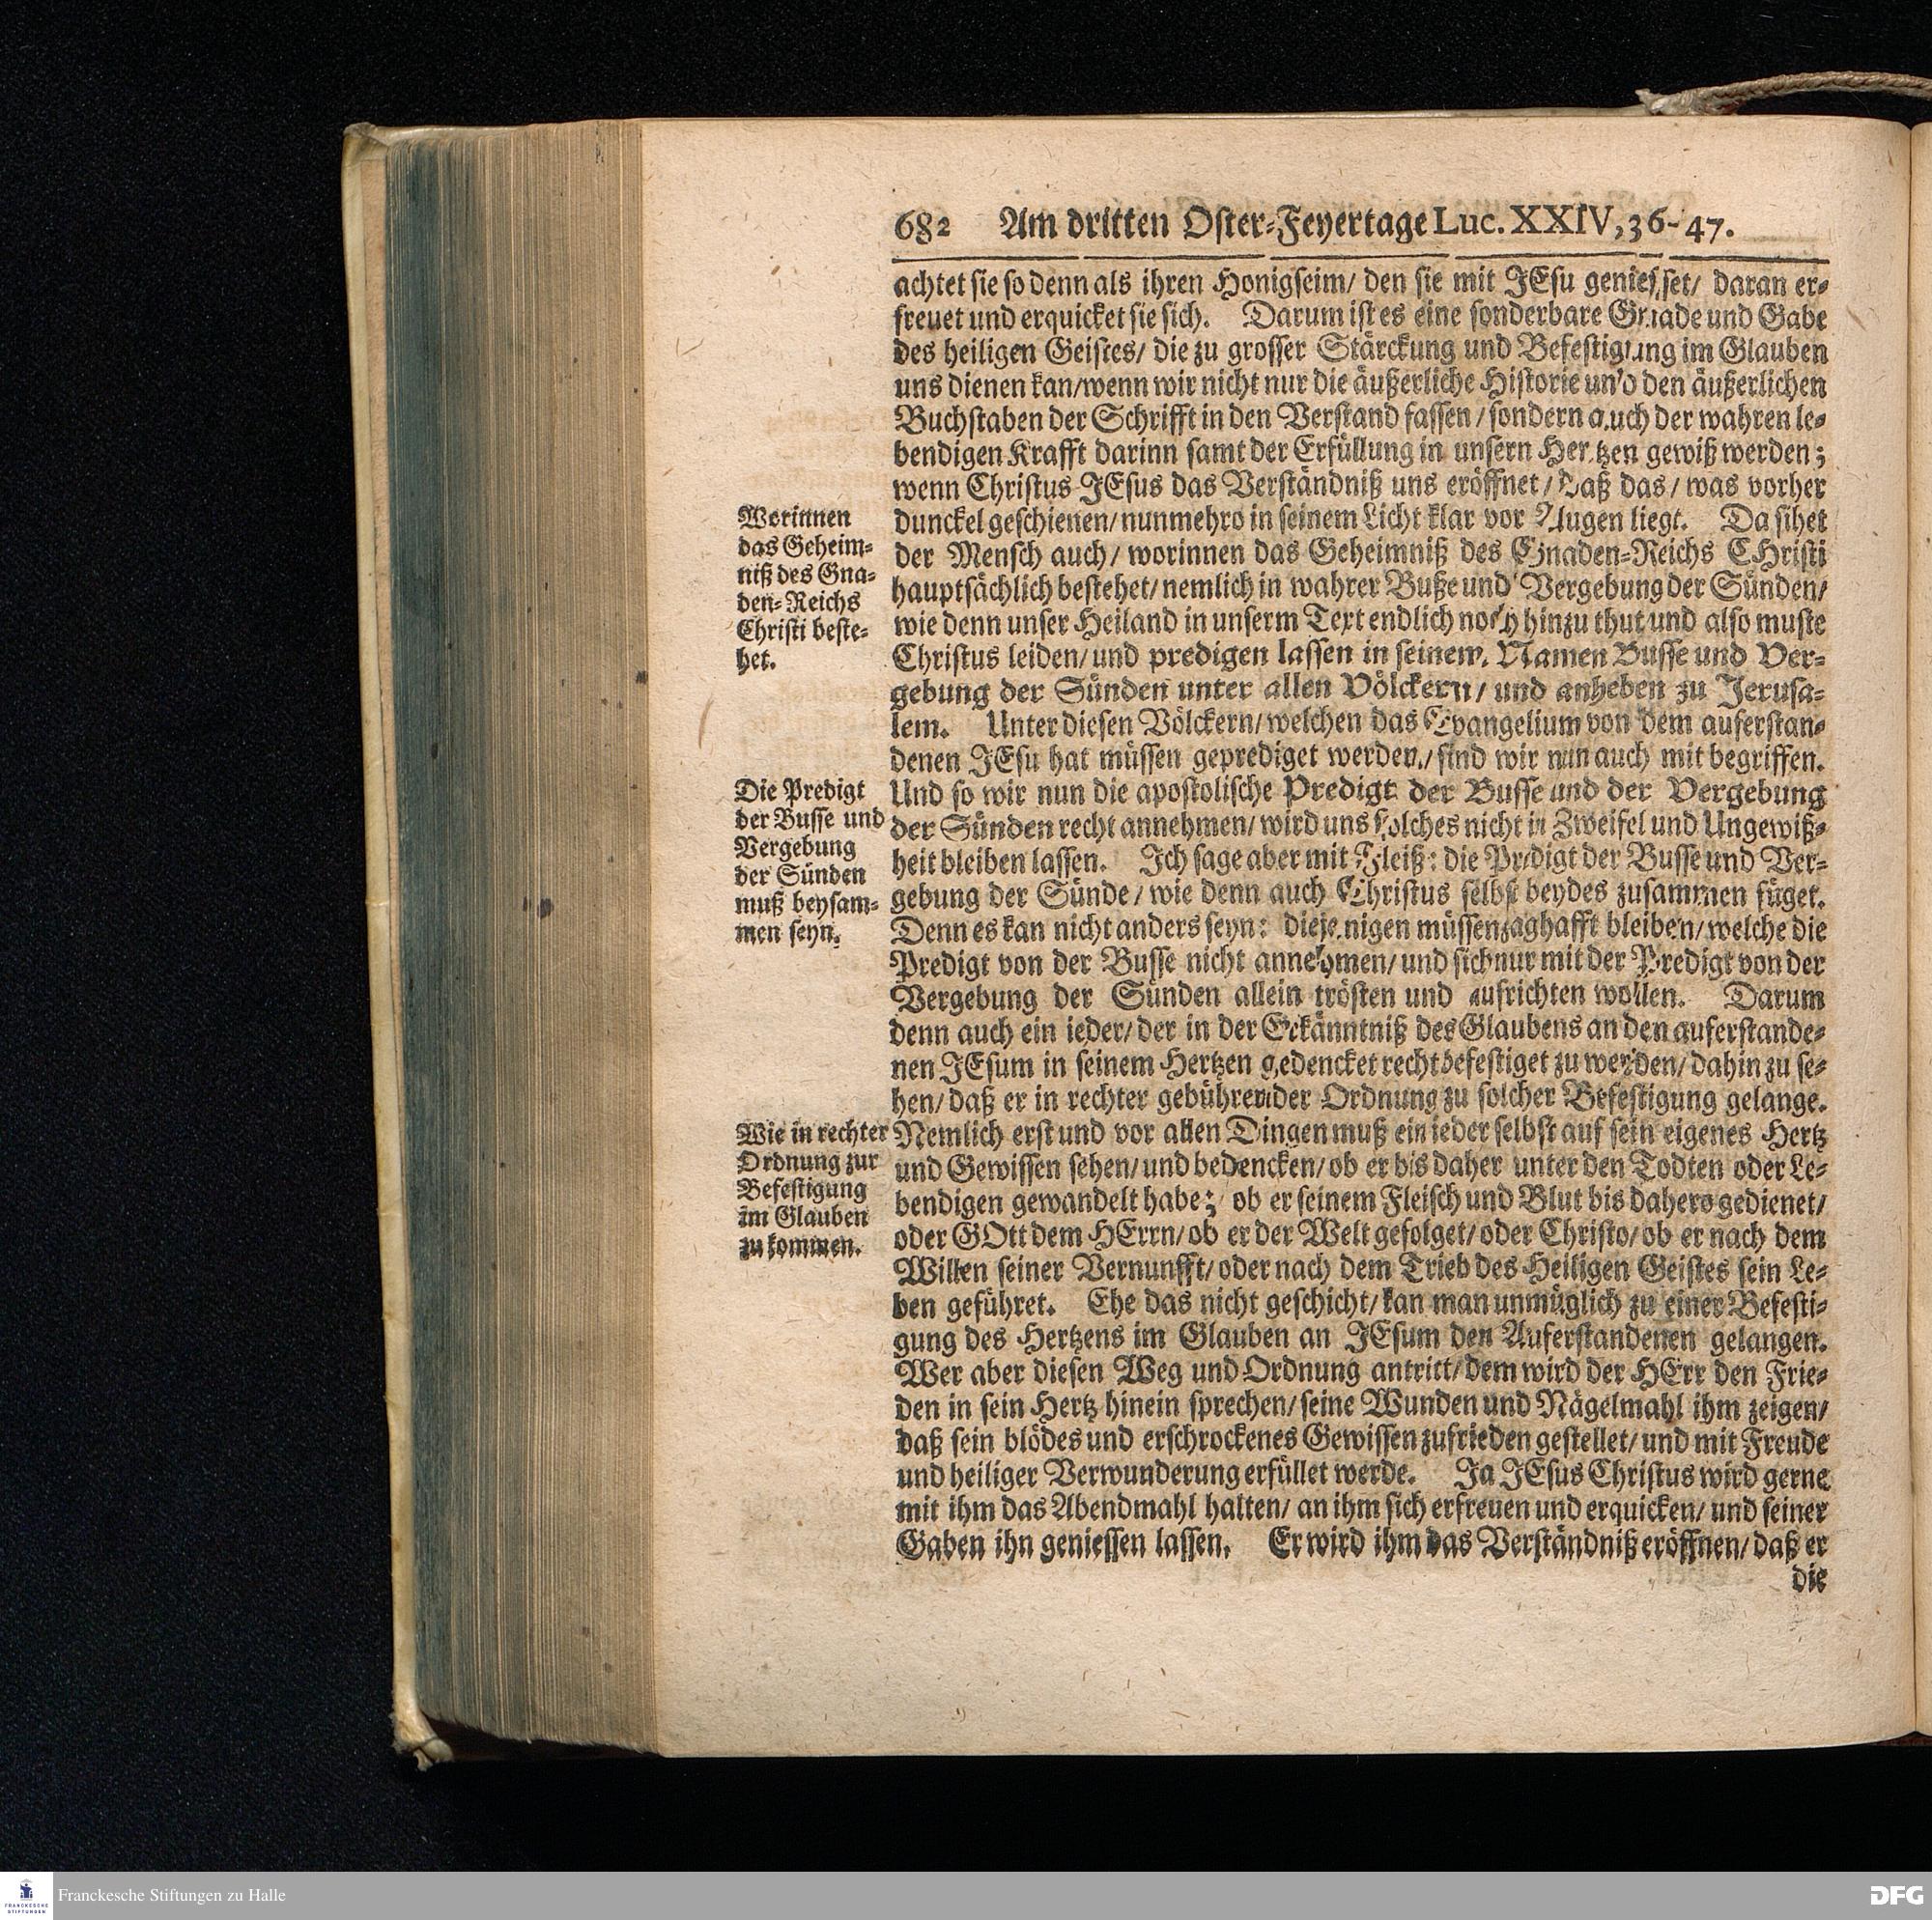 682 Am dritten Oster-Feyertage Luc. XXIV, 36-47.
achtet sie so denn als ihren Honigseim/ den sie mit JEsu geniesset/ daran er-
freuet und erquicket sie sich. Darum ist es eine sonderbare Gnade und Gabe
des heiligen Geistes/ die zu grosser Stärckung und Befestigung im Glauben
uns dienen kan/ wenn wir nicht nur die äußerliche Historie und den äußerlichen
Buchstaben der Schrifft in den Verstand fassen/ sondern auch der wahren le-
bendigen Krafft darinn samt der Erfüllung in unsern Hertzen gewiß werden;
wenn Christus JEsus das Verständniß uns eröffnet/ daß das/ was vorher
dunckel geschienen/ nunmehro in seinem Licht klar vor Augen liegt. Da sihet
der Mensch auch/ worinnen das Geheimniß des Gnaden-Reichs CHristi
hauptsächlich bestehet/ nemlich in wahrer Buße und Vergebung der Sünden/
wie denn unser Heiland in unserm Text endlich noch hinzu thut und also muste
Christus leiden/ und predigen lassen in seinem Namen Busse und Ver-
gebung der Sünden unter allen Völckern/ und anheben zu Jerusa-
lem. Unter diesen Völckern/ welchen das Evangelium von dem auferstan-
denen JEsu hat müssen geprediget werden/ sind wir nun auch mit begriffen.
Und so wir nun die apostolische Predigt der Busse und der Vergebung
der Sünden recht annehmen/ wird uns solches nicht in Zweifel und Ungewiß-
heit bleiben lassen. Ich sage aber mit Fleiß: die Predigt der Busse und Ver-
gebung der Sünde/ wie denn auch Christus selbst beydes zusammen füget.
Denn es kan nicht anders seyn: diejenigen müssen zaghafft bleiben/ welche die
Predigt von der Busse nicht annehmen/ und sich nur mit der Predigt von der
Vergebung der Sünden allein trösten und aufrichten wollen. Darum
denn auch ein ieder/ der in der Erkänntniß des Glaubens an den auferstande-
nen JEsum in seinem Hertzen gedencket recht befestiget zu werden/ dahin zu se-
hen/ daß er in rechter gebührender Ordnung zu solcher Befestigung gelange.
Nemlich erst und vor allen Dingen muß ein ieder selbst auf sein eigenes Hertz
und Gewissen sehen/ und bedencken/ ob er bis daher unter den Todten oder Le-
bendigen gewandelt habe; ob er seinem Fleisch und Blut bis dahero gedienet/
oder GOtt dem HErrn/ ob er der Welt gefolget/ oder Christo/ ob er nach dem
Willen seiner Vernunfft/ oder nach dem Trieb des Heiligen Geistes sein Le-
ben geführet. Ehe das nicht geschicht/ kan man unmüglich zu einer Befesti-
gung des Hertzens im Glauben an JEsum den Auferstandenen gelangen.
Wer aber diesen Weg und Ordnung antritt/ dem wird der HErr den Frie-
den in sein Hertz hinein sprechen/ seine Wunden und Nägelmahl ihm zeigen/
daß sein blödes und erschrockenes Gewissen zufrieden gestellet/ und mit Freude
und heiliger Verwunderung erfüllet werde. Ja JEsus Christus wird gerne
mit ihm das Abendmahl halten/ an ihm sich erfreuen und erquicken/ und seiner
Gaben ihn geniessen lassen. Er wird ihm das Verständniß eröffnen/ daß er
die
Worinnen
das Geheim-
niß des Gna-
den-Reichs
Christi beste-
het.
Die Predigt
der Busse und
Vergebung
der Sünden
muß beysam-
men seyn.
Wie in rechter
Ordnung zur
Befestigung
im Glauben
zu kommen.
Franckesche Stiftungen zu Halle
FRANCKESCHE
STIFTUNGEN
DFG